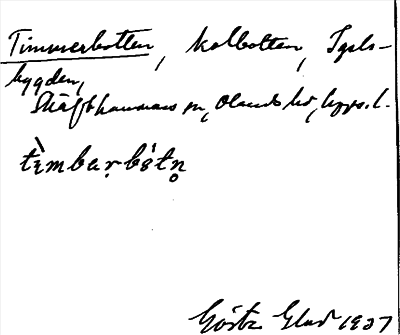 Timmerbotten, kolbotten, Igels-
bygden,
Skäfthammars sn, Olands hd, Upps. l.
tìmbaṛbótn̥
Gösta Glad 1937